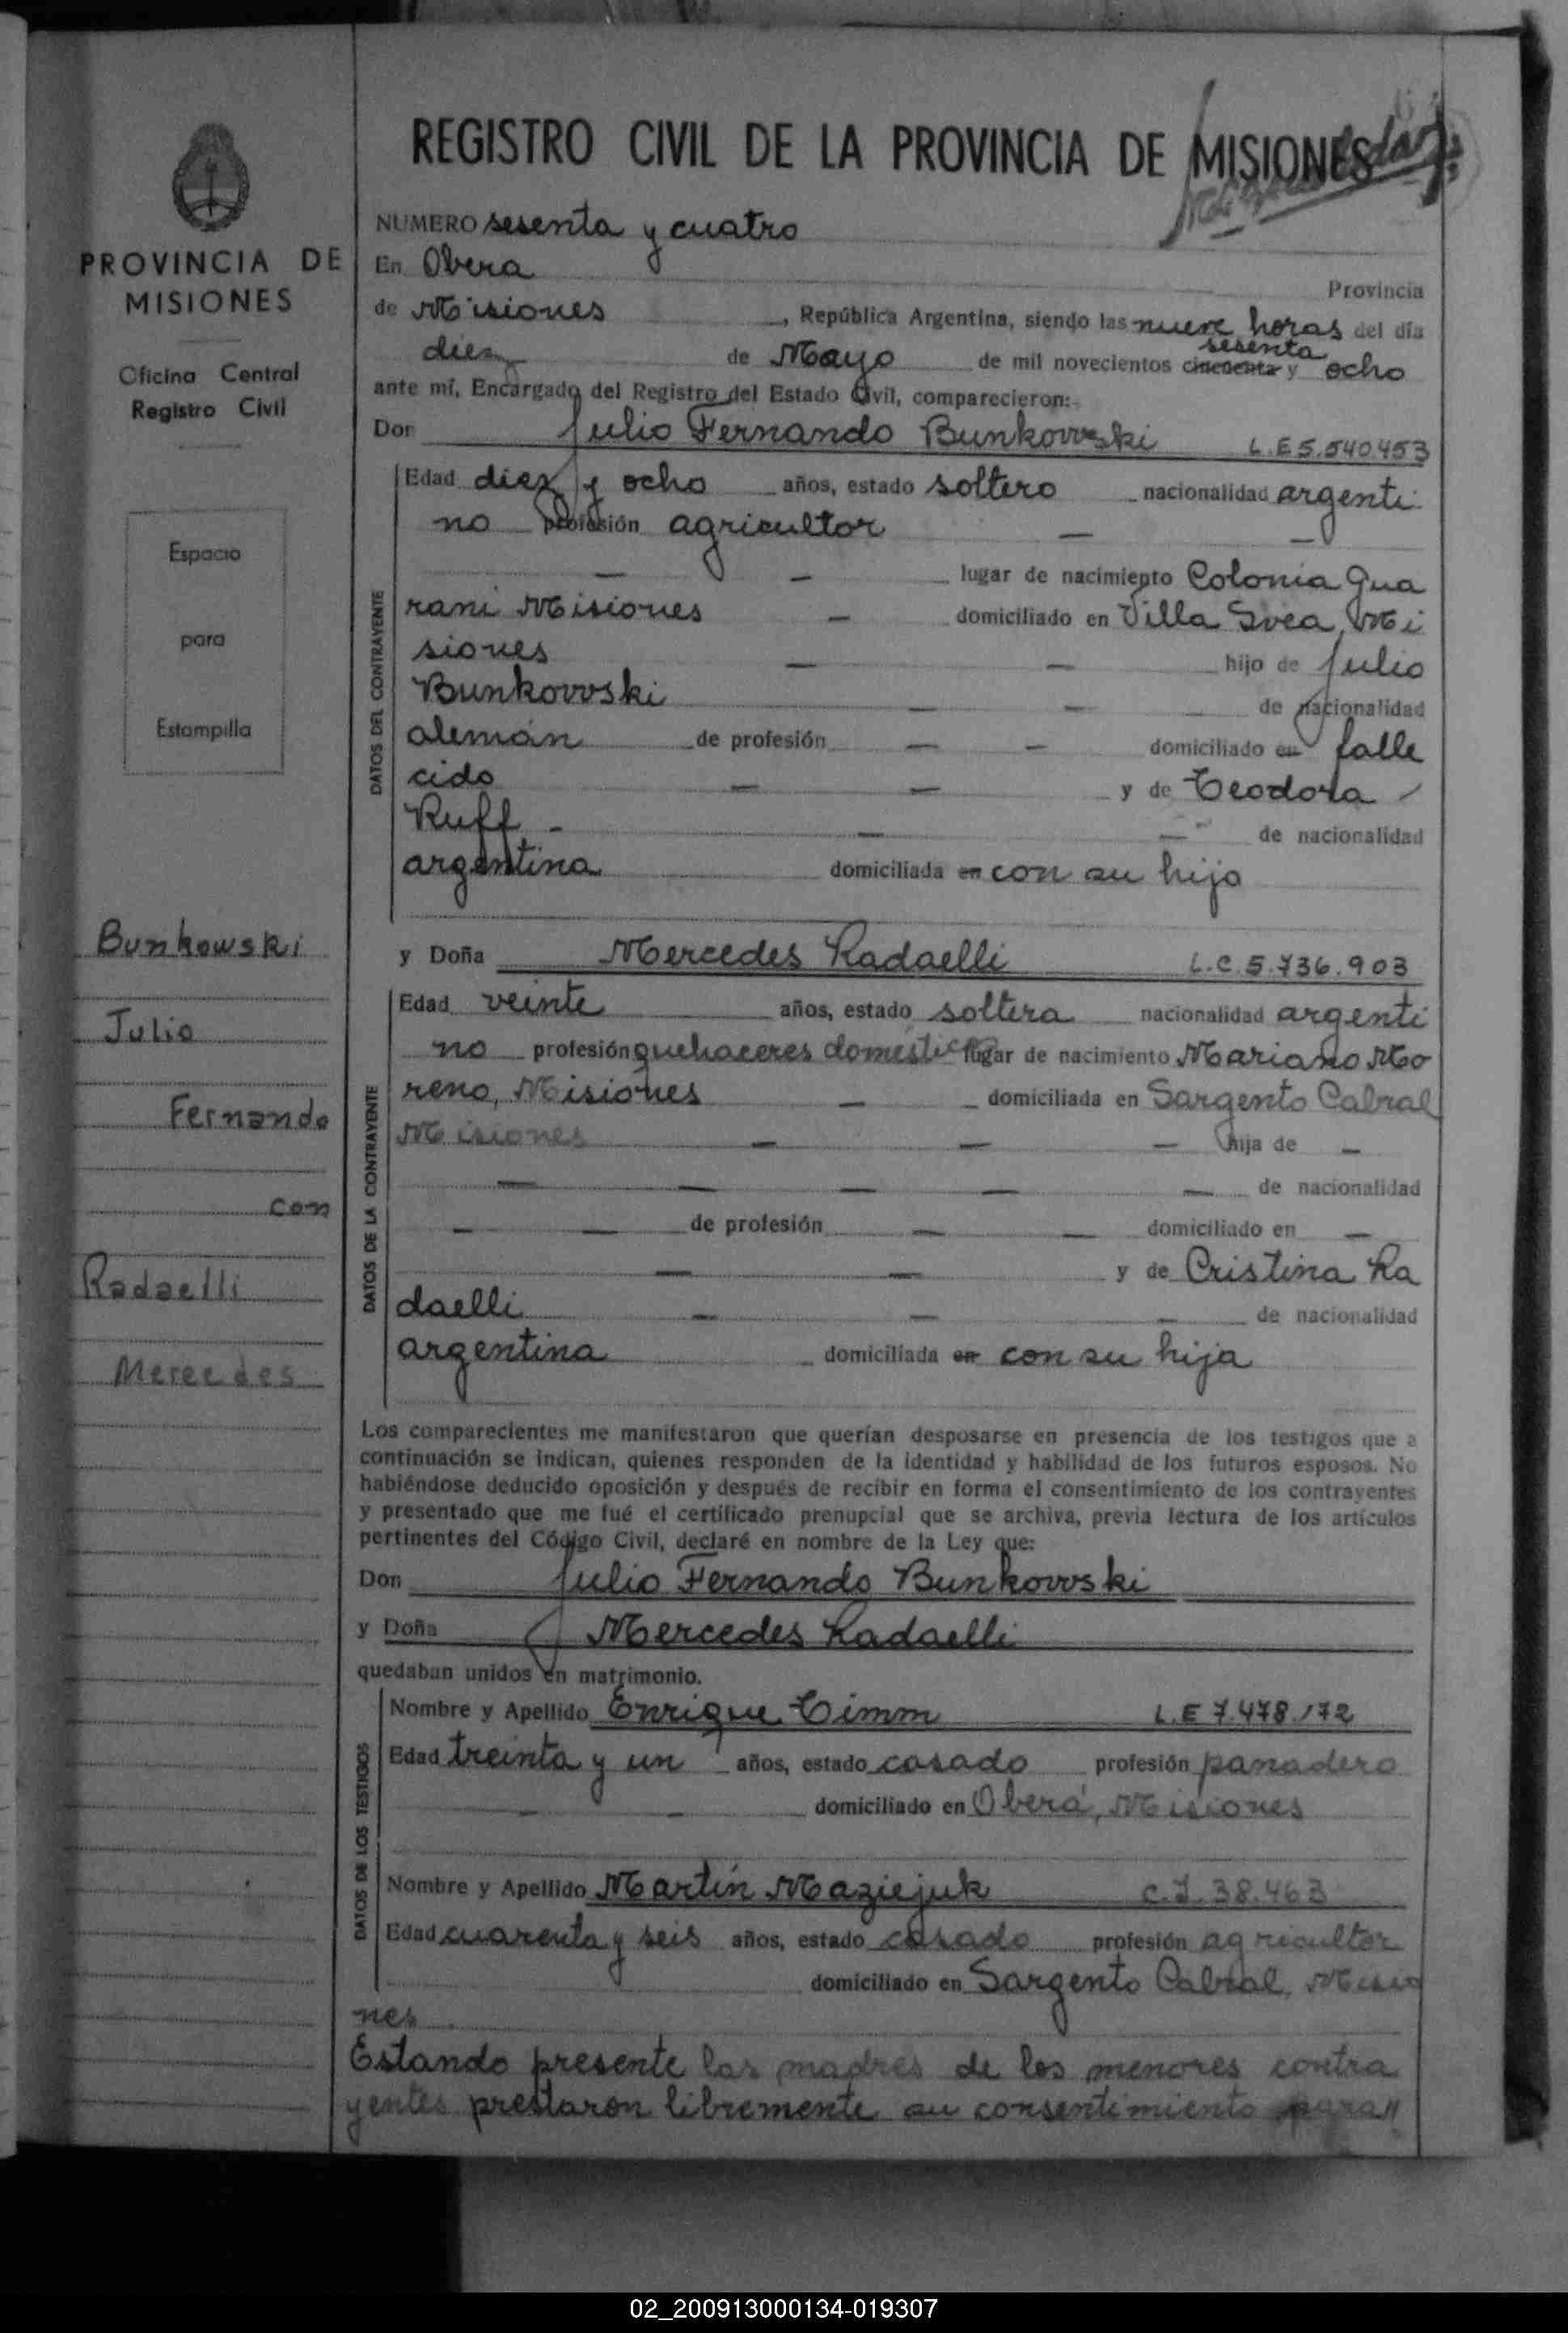 REGISTRO CIVIL DE LA PROVINCIA DE MISIONES
PROVINCIA DE
MISIONES
Oficina Central
Registro Civil
Espacio
para
Estampilla
Bunkowski
Julio
Fernando
con
Radaelli
Mercedes
NUMERO sesenta y cuatro
En Obera
Provincia
de Misiones, República Argentina, siendo las nueve horas del día
diez de Mayo de mil novecientos cincuenta y sesenta ocho
ante mí, Encargado del Registro del Estado Civil, comparecieron:
Don Julio Fernando Bunkowski L.E 5.540.453
DATOS DEL CONTRAYENTE
Edad diez y ocho años, estado soltero nacionalidad argenti
no profesión agricultor — —
— — lugar de nacimiento Colonia Gua
rani Misiones — domiciliado en Villa Svea, Mi
siones — — hijo de Julio
Bunkowski — — de nacionalidad
alemán de profesión — — domiciliado en falle
cido — — y de Teodora
Ruff - — — de nacionalidad
argentina domiciliada en con su hijo
y Doña Mercedes Radaelli L.C 5.736.903
DATOS DE LA CONTRAYENTE
Edad veinte años, estado soltera nacionalidad argenti
no profesión quehaceres domésticos lugar de nacimiento Mariano Mo
reno, Misiones — domiciliada en Sargento Cabral
Misiones — — — hija de —
— — — — — de nacionalidad
— — de profesión — — domiciliado en —
— — y de Cristina Ra
daelli — — — de nacionalidad
argentina domiciliada en con su hija
Los comparecientes me manifestaron que querían desposarse en presencia de los testigos que a
continuación se indican, quienes responden de la identidad y habilidad de los futuros esposos. No
habiéndose deducido oposición y después de recibir en forma el consentimiento de los contrayentes
y presentado que me fué el certificado prenupcial que se archiva, previa lectura de los artículos
pertinentes del Código Civil, declaré en nombre de la Ley que:
Don Julio Fernando Bunkowski
y Doña Mercedes Radaelli
quedaban unidos en matrimonio.
DATOS DE LOS TESTIGOS
Nombre y Apellido Enrique Timm L.E 7.478.172
Edad treinta y un años, estado casado profesión panadero
— — domiciliado en Oberá, Misiones
Nombre y Apellido Martín Maziejuk C.I. 38.463
Edad cuarenta y seis años, estado casado profesión agricultor
domiciliado en Sargento Cabral, Misio
nes
Estando presente las madres de los menores contra
yentes prestaron libremente su consentimiento para//
02_200913000134-019307